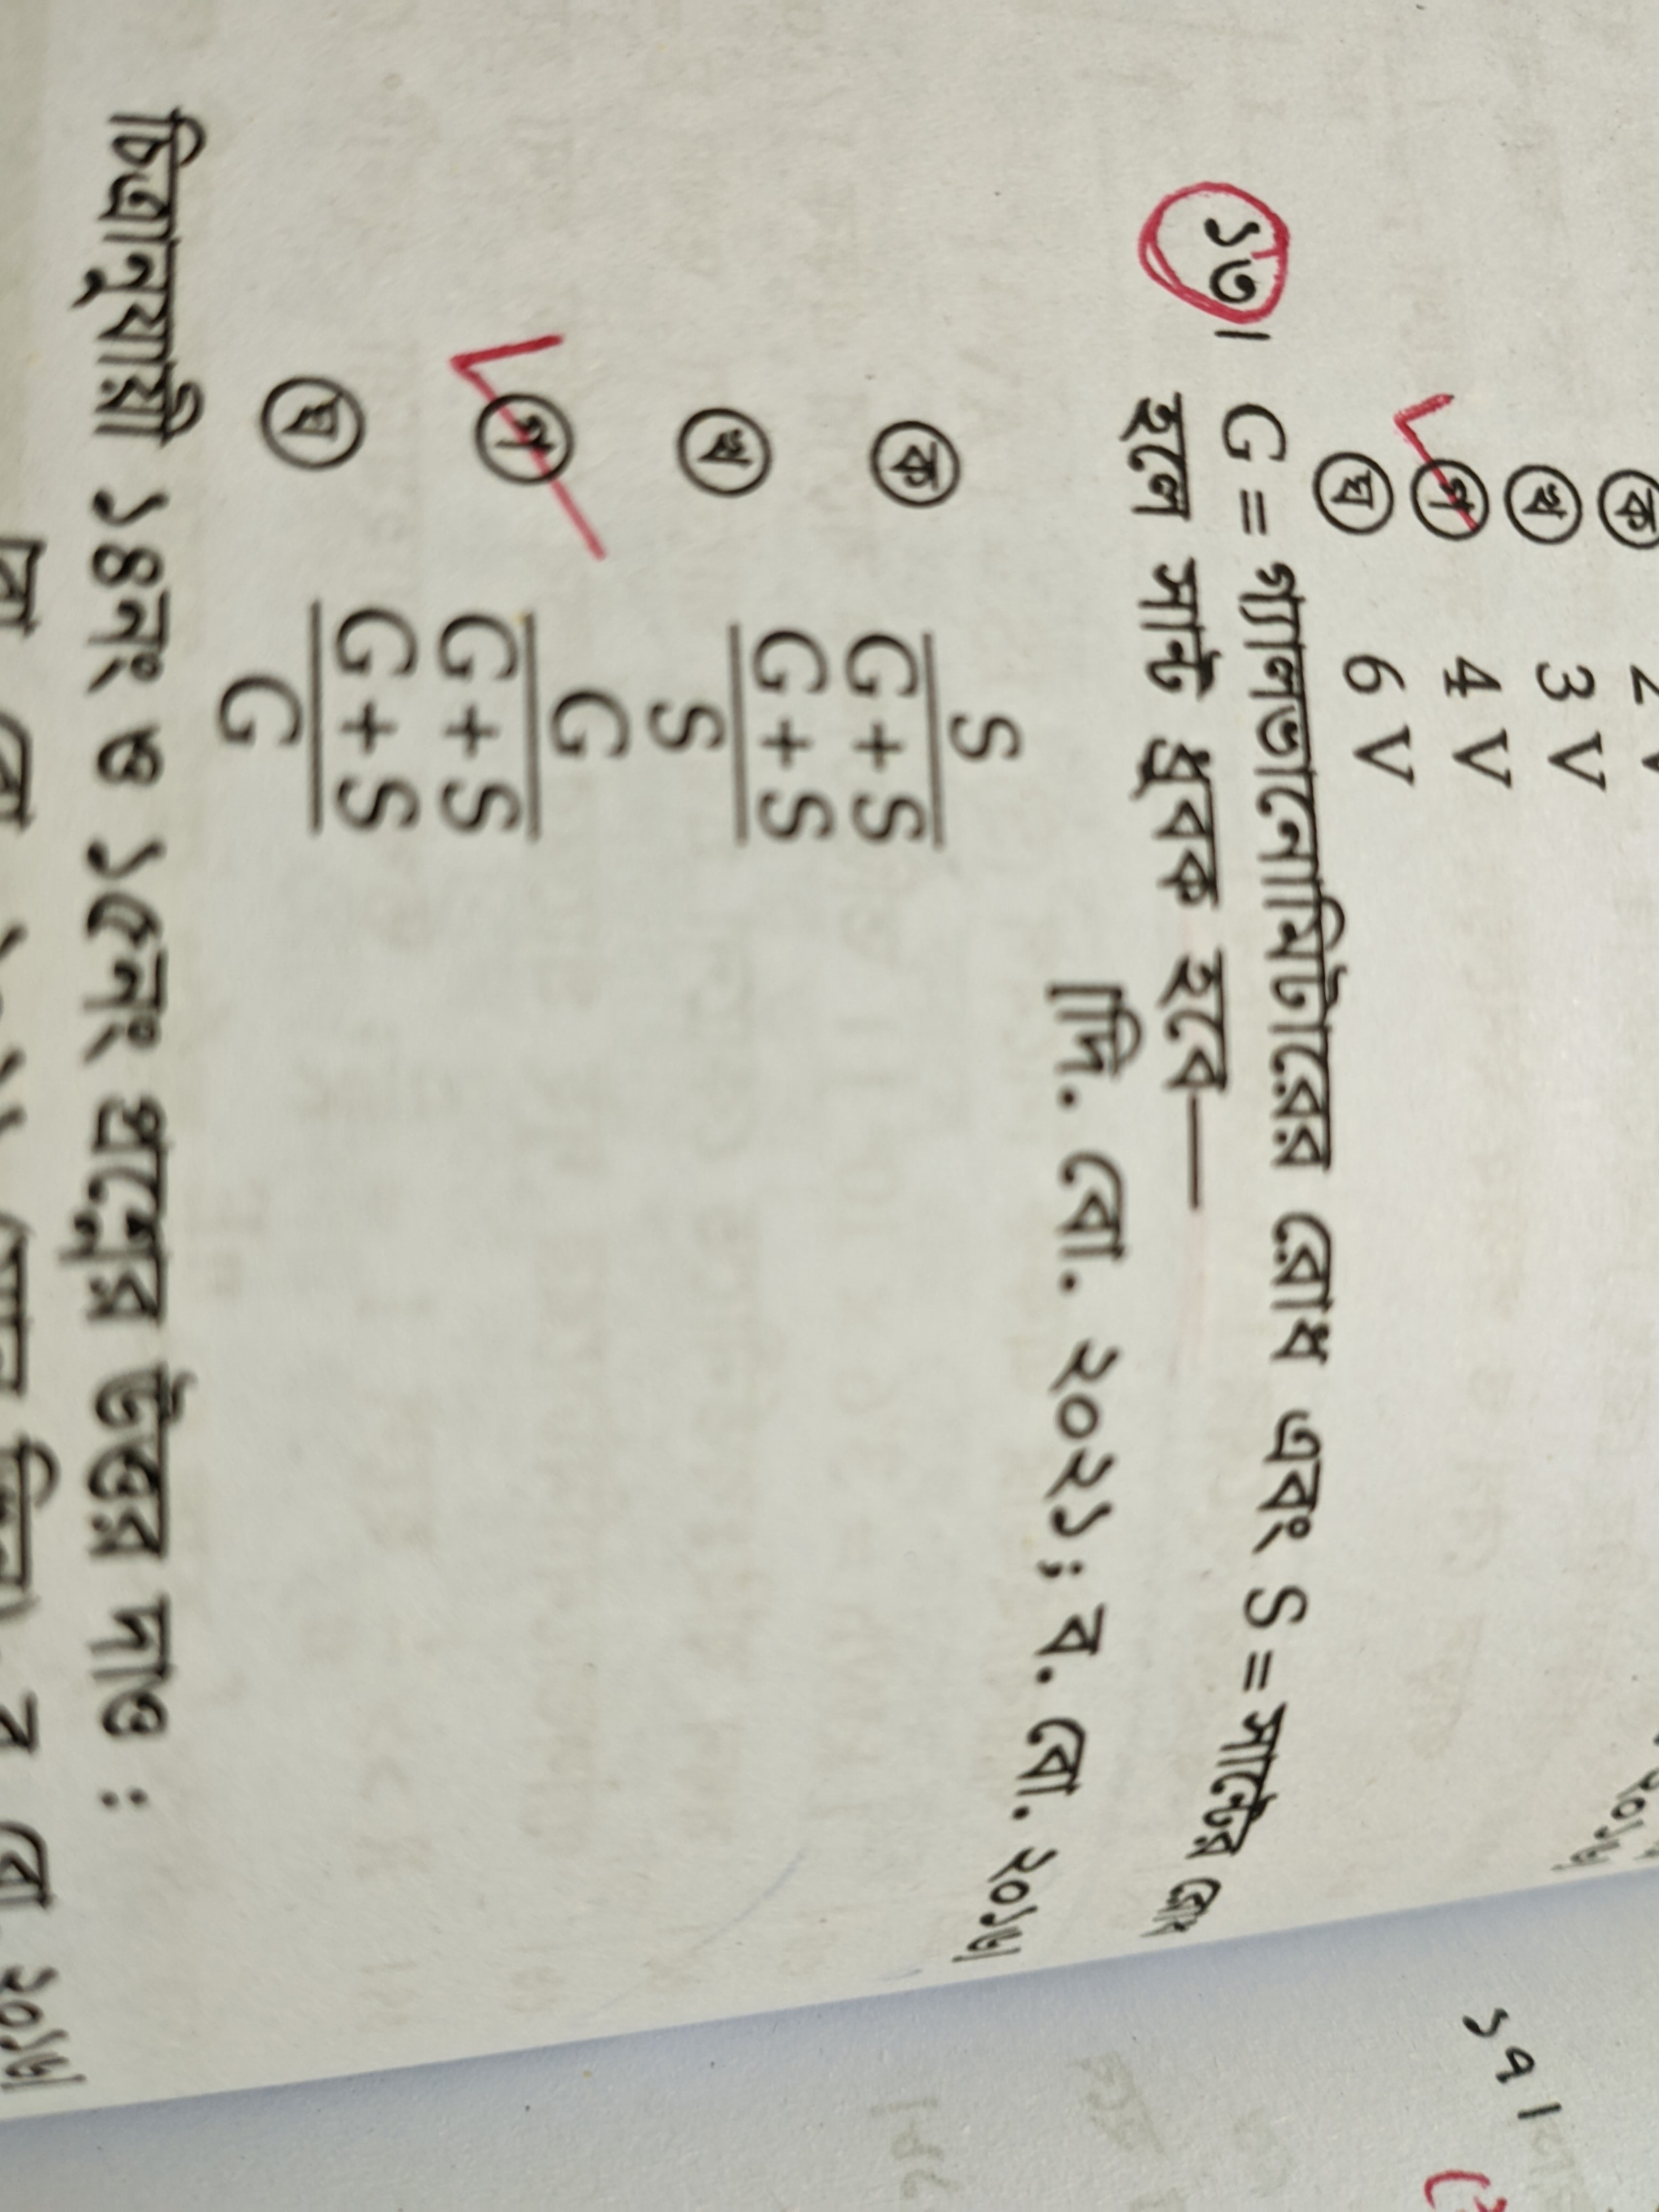 ক
খ 3 V
গ 4 V
ঘ 6 V
১৩। G = গ্যালভানোমিটারের রোধ এবং S = সান্টের রোধ
হলে সান্ট ধ্রুবক হবে—
[দি. বো. ২০২১; ব. বো. ২০১৬]
ক S
G + S
খ G + S
S
গ G
G + S
ঘ G + S
G
চিত্রানুযায়ী ১৪নং ও ১৫নং প্রশ্নের উত্তর দাও :
১৭।